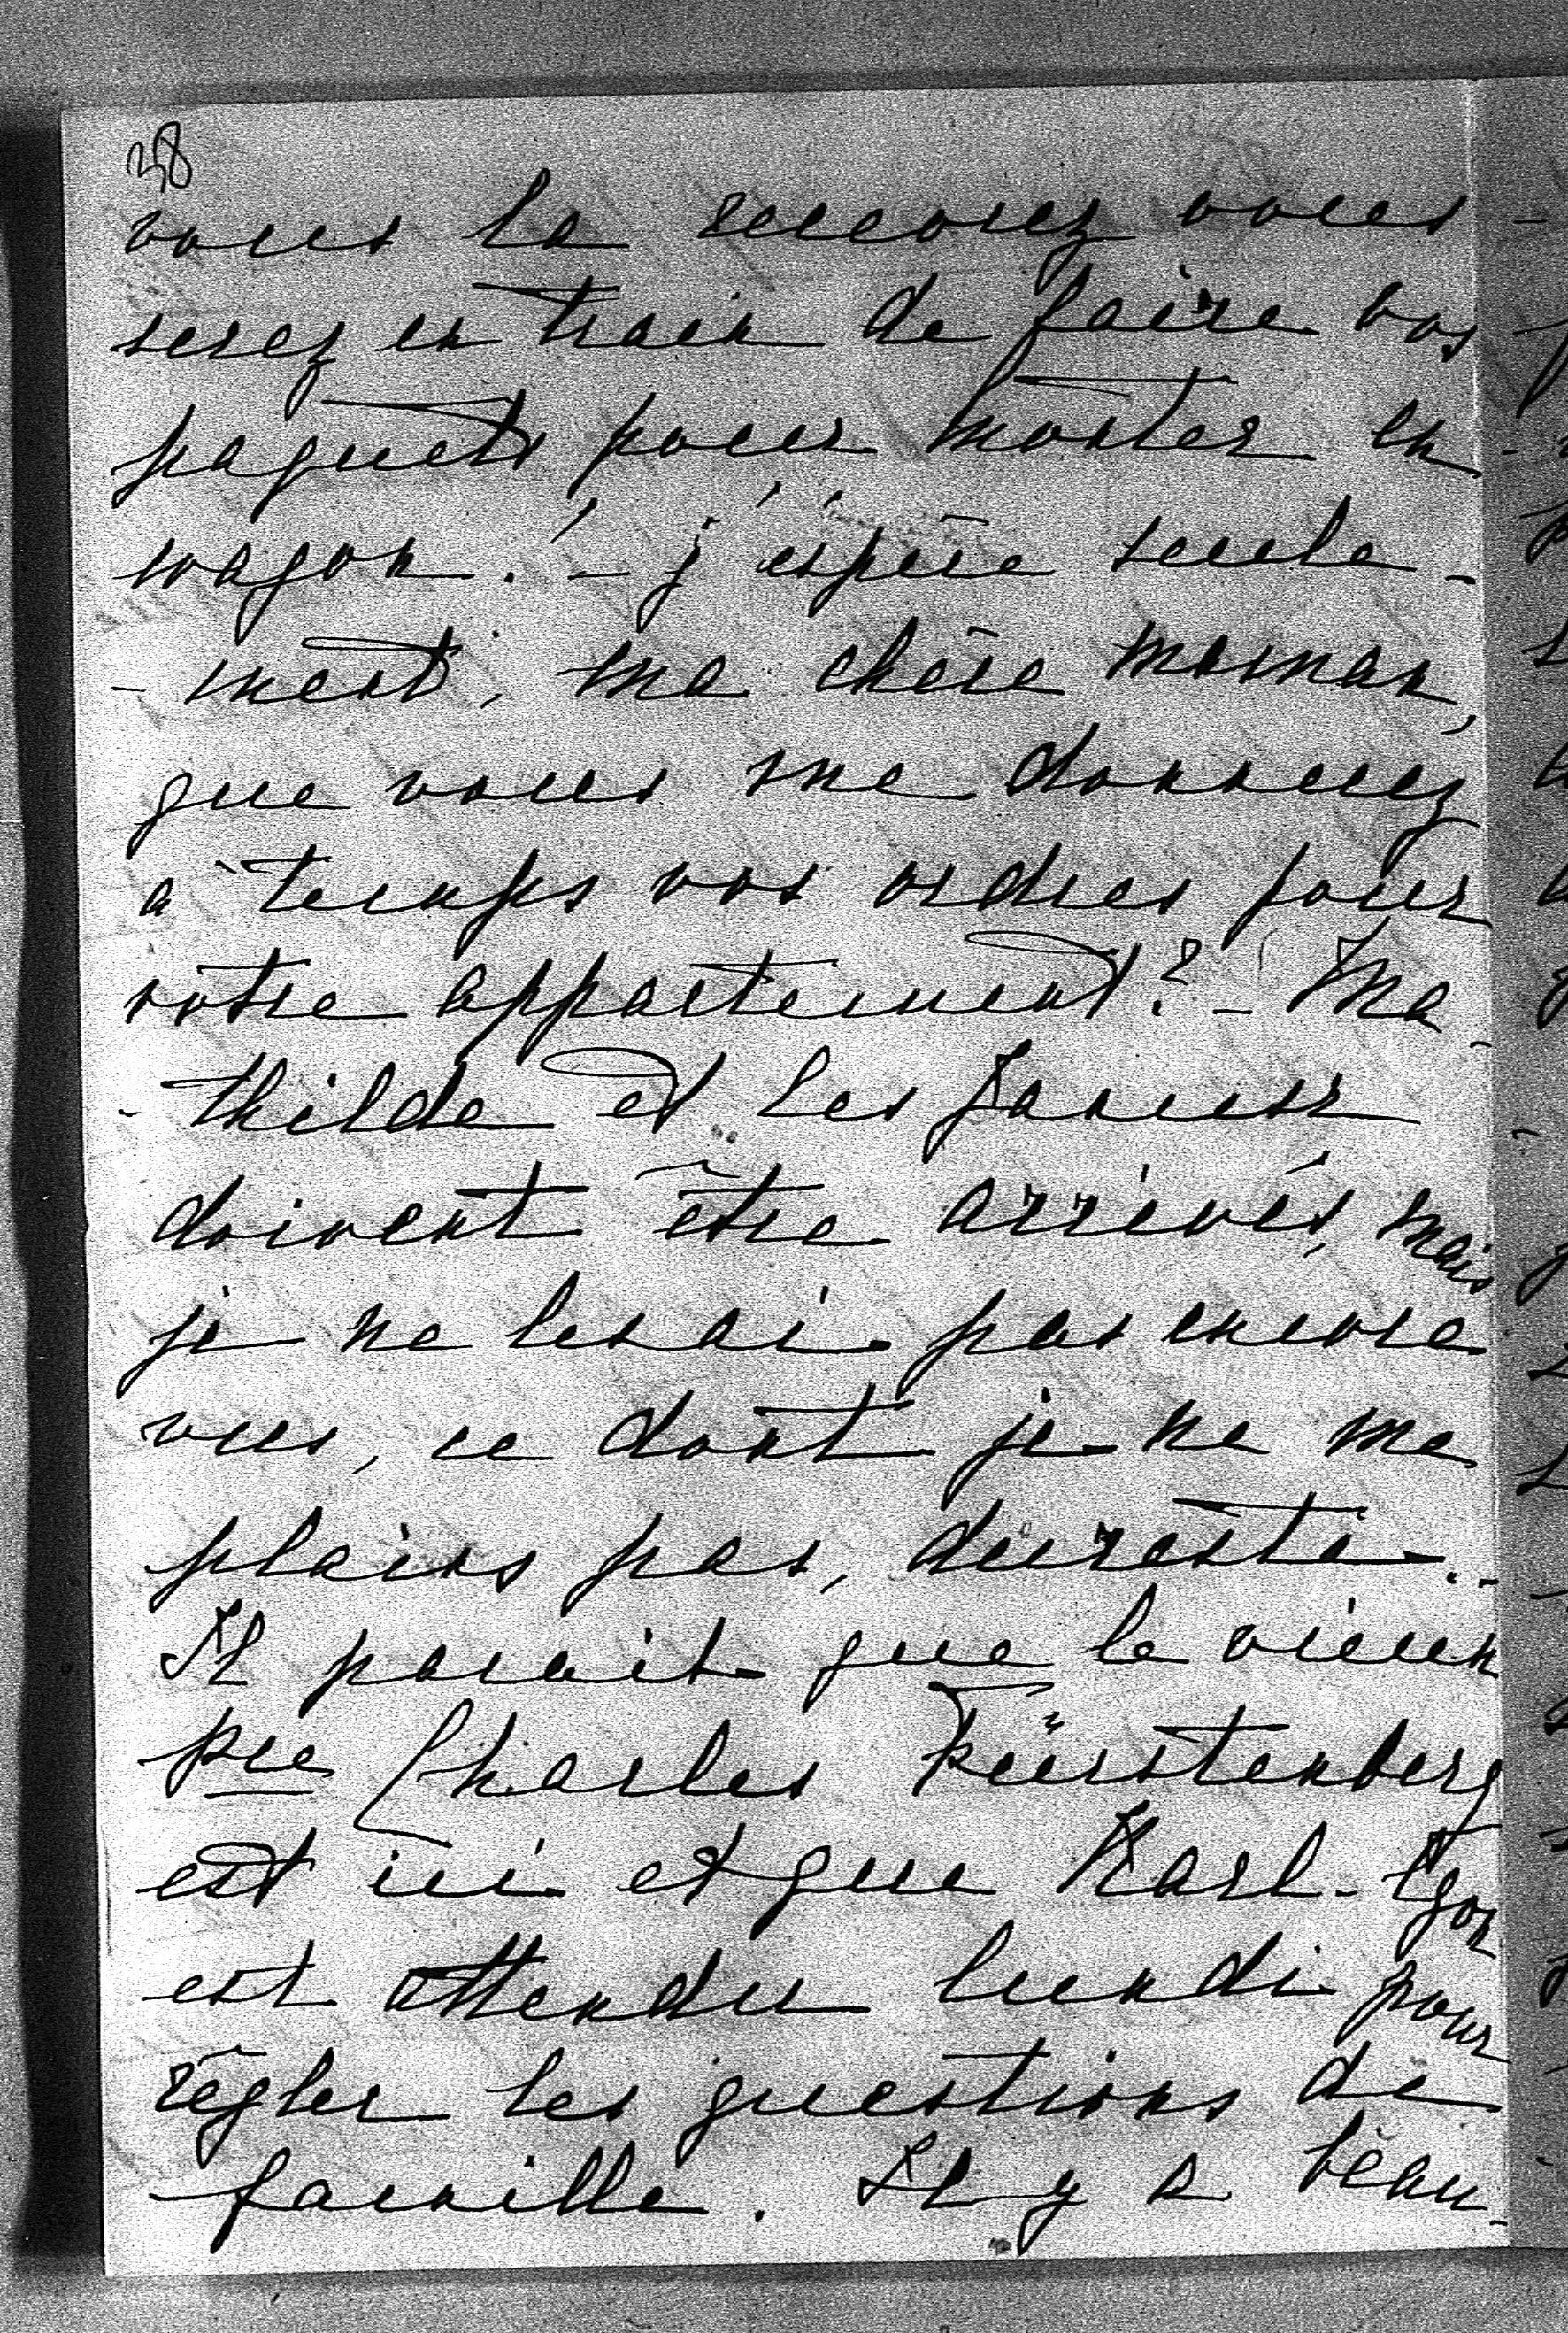 38
vous la recevrez vous
serez en train de faire vos
paquets pour monter en
wagon! - j'espère seule-
-ment, ma chère maman,
que vous me donnerez
à temps vos ordres pour
votre appartement? - Ma-
-thilde et les
doivent être arrivés, mais
je ne les ai pas encore
vus, ce dont je ne me
plains pas, dureste. -
Il parait que le vieux
pce Charles Fürstenberg
est ici et que Karl-Egon
est attendu lundi pour
régler les questions de
famille. Il y a beau-